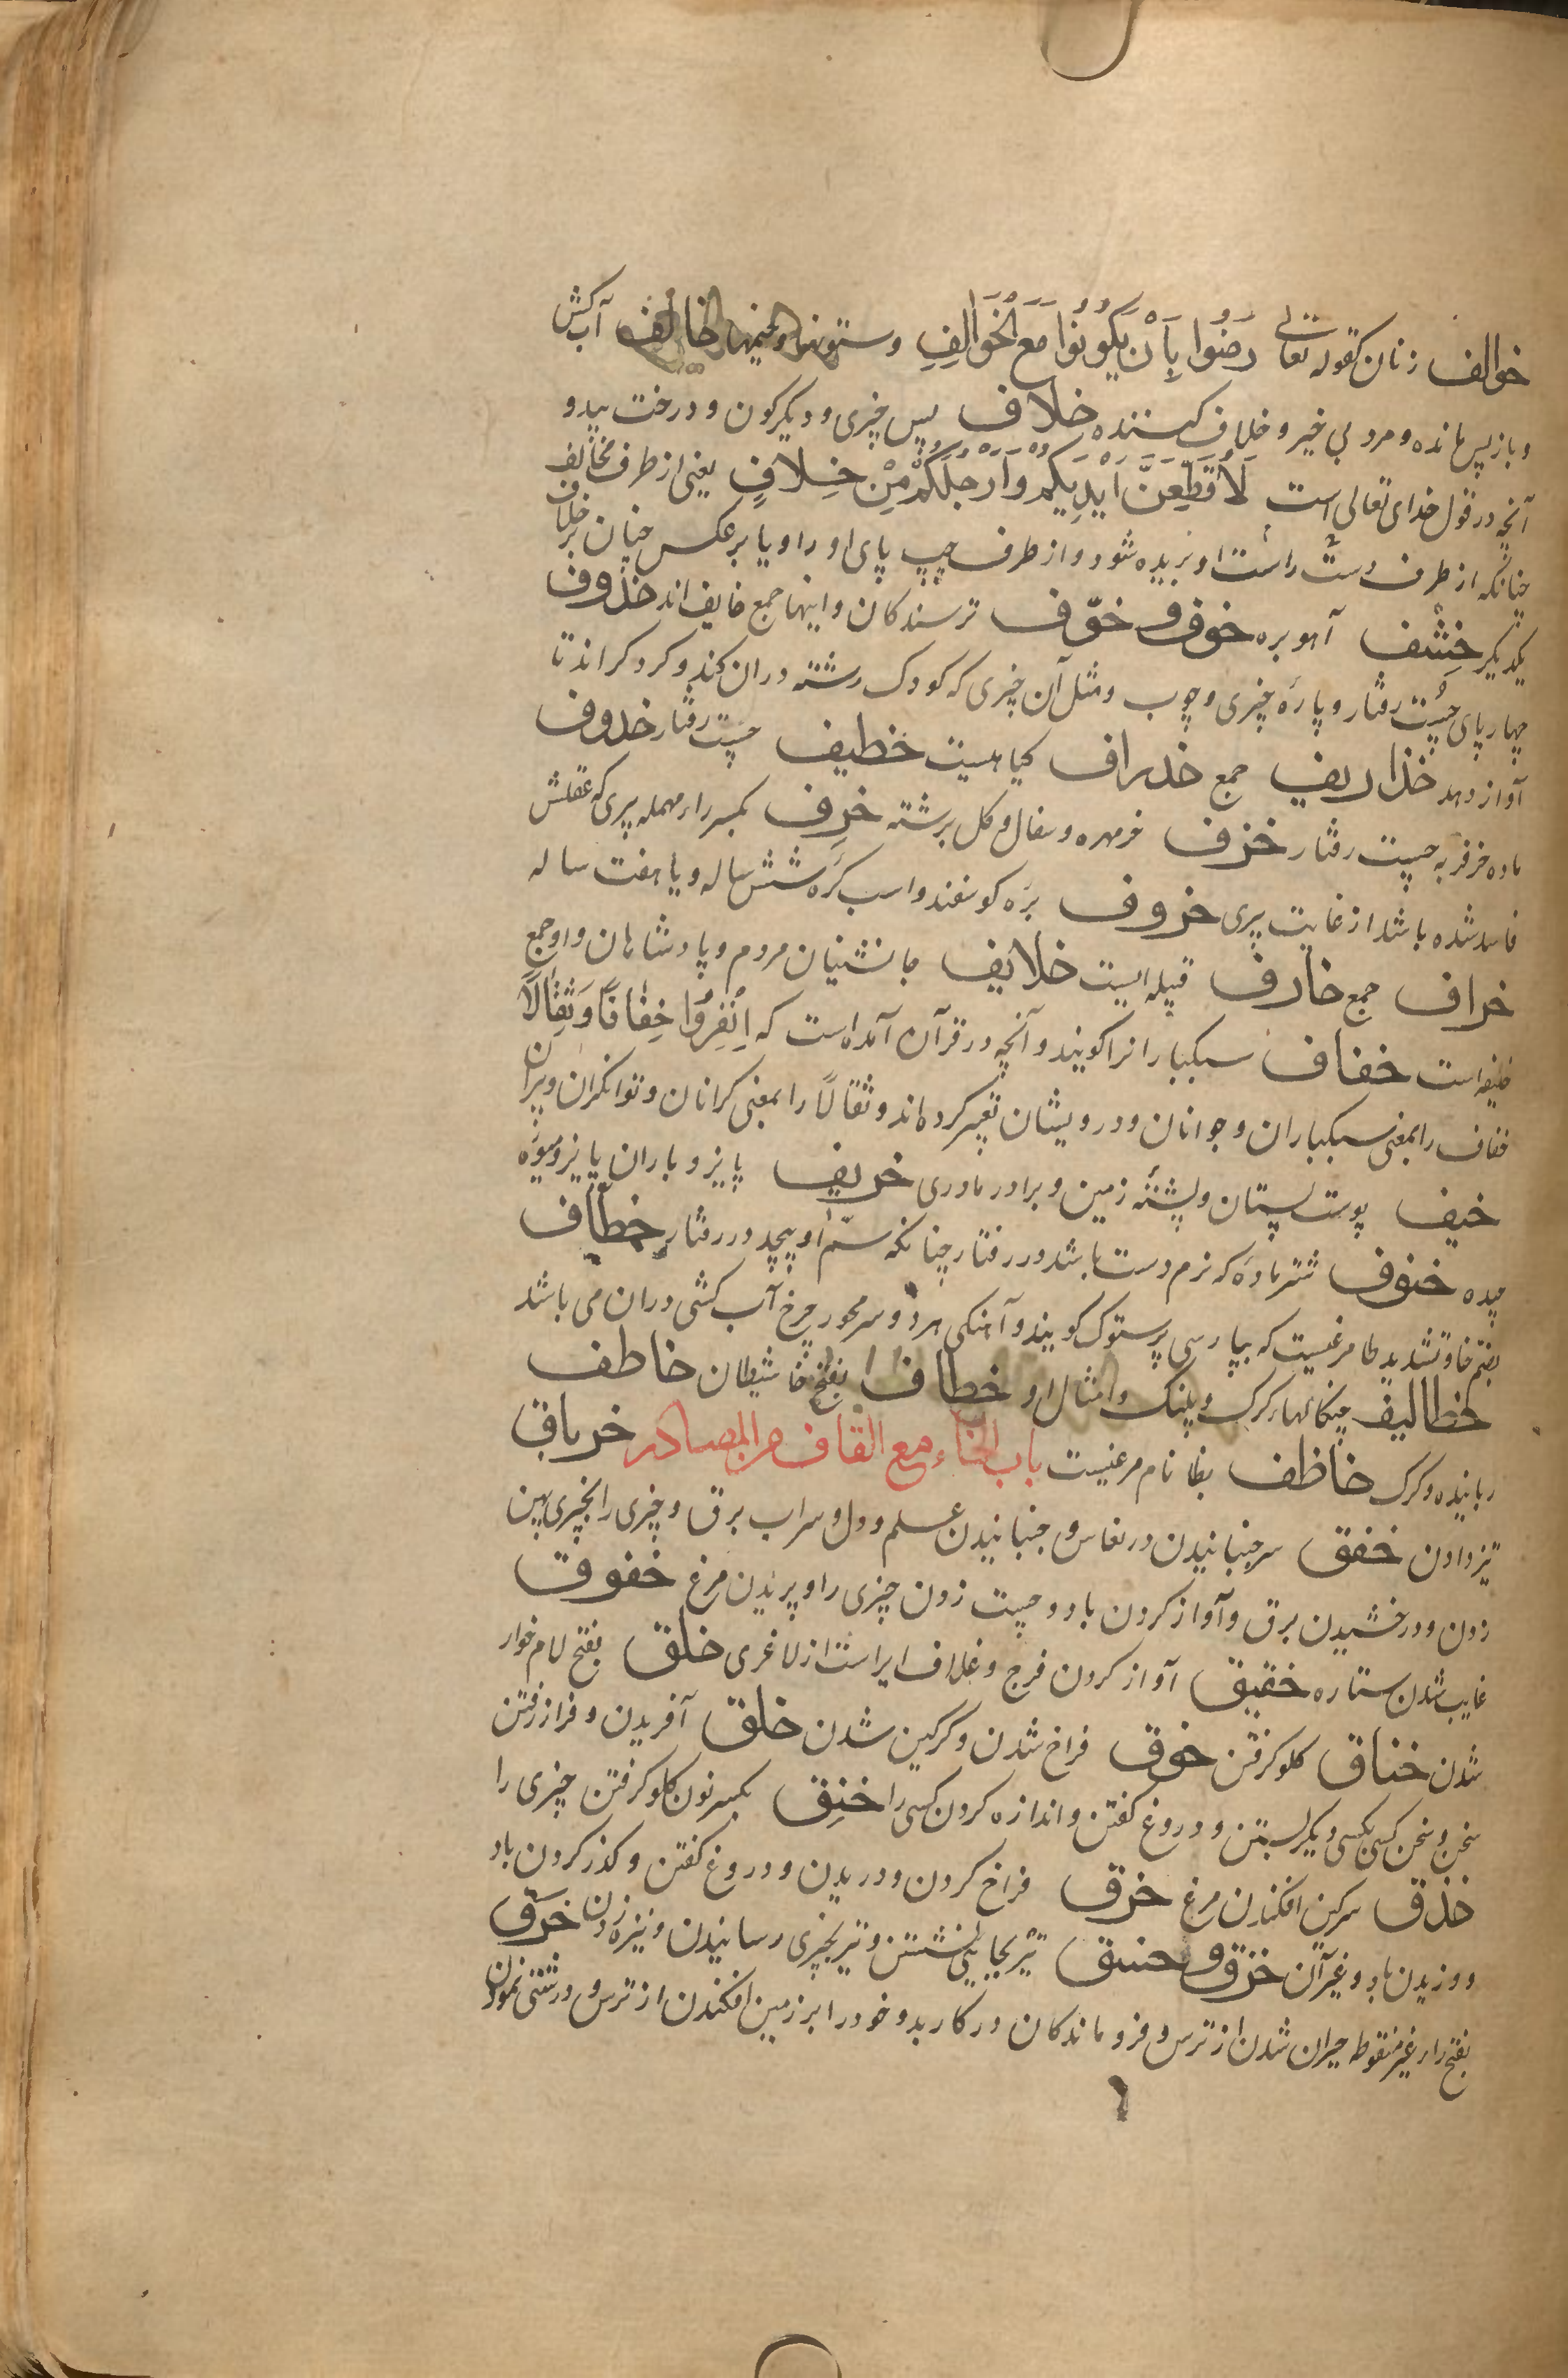 خوالف زنان کقوله تعالی رَضُوا بِاَنْ يَكُونُوا مَعَ الْخَوَالِفِ وستونهاوخیمها خالف آب کش
وبازپس مانده ومرد بی خیر وخلاف کننده خلاف پس چیزی ودیکرکون ودرخت بیدو
آنچه درقول خدای تعالی است لَاُقَطِّعَنَّ اَيْدِيَكُمْ وَاَرْجُلَكُمْ مِنْ خِلافٍ یعنی ازطرف مخالف
چنانکه ازطرف دست راست او بریده شود و ازطرف چپ پای او را ویا برعکس چنان برخلاف
یکدیکر خِشْف آهوبره خوف و خوّف ترسندکان واینها جمع خایف اند خذوف
چهارپای چست رفتار وپارۀ چیزی وچوب ومثل آن چیزی که کودک رشته دران کند وکردکرداند تا
آواز دهد خذاریف جمع خدراف کیاهیست خطیف چست رفتار خدوف
ماده خر فربه چست رفتار خزف خرمهره وسفال وکل برشته خرِف بکسر راء مهمله پیری که عقلش
فاسد شده باشد ازغایت پیری خروف برۀ کوسفند واسب کرۀ شش ساله ویا هفت ساله
خراف جمع خارف قبیله ایست خلایف جانشینان مردم وپادشاهان واوجمع
خلیفه است خفاف سبکبارانرا کویند وآنچه درقرآن آمده است که اِنْفِرُوا خِفَافًا وَثِقَالًا
خفاف رابمعنی سبکباران وجوانان ودرویشان تعبیر کرده اند وثقالاً را بمعنی کرانان وتوانکران وپیران
خیف پوست پستان وپشتۀ زمین وبرادر مادری خریف پاییز وباران پاییز ومیوۀ
چیده خنوف شتر مادۀ که نرم دست باشد دررفتار چنانکه سم او پیچد دررفتار خطّاف
بضم خا وتشدید طا مرغیست که بپارسی پرستوک کویند وآهنکی هردو سر محور چرخ آب کشی دران می باشد
خطالیف چنکالهاء کرک وپلنک وامثال او خطاف بفتح خا شیطان خاطف
رباینده وکرک خاظف بظا نام مرغیست باب الخاء مع القاف من المصادر خرباق
تیز دادن خفق سرجنبانیدن درنعاس وجنبانیدن علم ودل وسراب برق وچیزی رابچیزی پهن
زدن ودرخشیدن برق وآواز کردن باد وچست زدن چیزی را وپریدن مرغ خفوق
غایب شدن ستاره خقیق آواز کردن فرج وغلاف ایراست ازلاغری خلق بفتح لام خوار
شدن خناق کلو کرفتن خوق فراخ شدن وکرکین شدن خلق آفریدن وفرازرفتن
سخن وسخن کسی بکسی دیکر بستن ودروغ کفتن واندازه کردن کسی را خنِق بکسر نون کلو کرفتن چیزی را
خذق سرکین افکندن مرغ خرق فراخ کردن ودریدن ودروغ کفتن وکذر کردن باد
ووزیدن باد وغیر آن خزق و خسق تیر بجایی نشستن وتیر بچیزی رسانیدن ونیزه زدن خرَق
بفتح راء غیرمنقوطه حیران شدن ازترس وفروماندکان درکاربد وخودرا برزمین افکندن ازترس ودرشتی نمودن